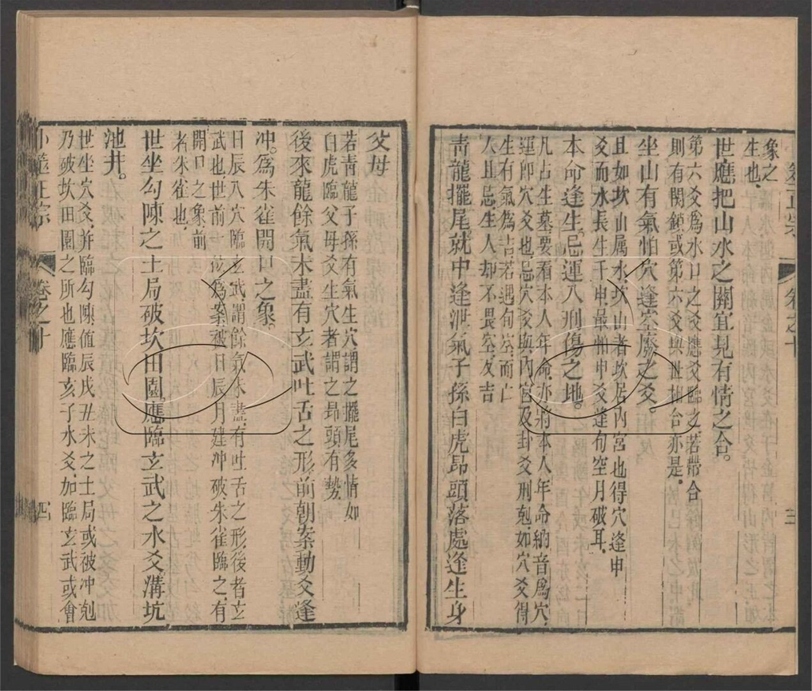 象之
生也
世應把山水之關宜見有情之合
第六爻為水口之爻應爻臨之若帶合
則有關鎖或第六爻與世相合亦是
坐山有氣怕穴逢空廢之爻
且如坎山屬水坎山者坎居內宮也得穴逢申
爻而水長生于申最怕申爻逢旬空月破耳
本命逢生忌運入刑傷之地
凡占生墓要看本人年命亦將本人年命納音為穴
運卽穴爻也忌穴爻與內宮及卦爻刑剋如穴爻得
生有氣為吉若遇旬空而亡
人且忌生人却不畏空反吉
青龍擺尾就中逢泄氣子孫白虎昂頭落處逢生身
父母
若青龍子孫有氣生穴謂之擺尾多情如
白虎臨父母爻生穴者謂之昂頭有勢
後來龍餘氣未盡有玄武吐舌之形前朝案動爻逢
沖為朱雀開口之象
日辰入穴臨玄武謂餘氣未盡有吐舌之形後者玄
武也世前一爻為案被日辰月建沖破朱雀臨之有
開口之象前
者朱雀也
世坐勾陳之土局破坎田園應臨玄武之水爻溝坑
池井
世坐穴爻并臨勾陳值辰戌丑未之土局或被沖剋
乃破坎田園之所也應臨亥子水爻加臨玄武或會
卜筮正宗 卷之十 四